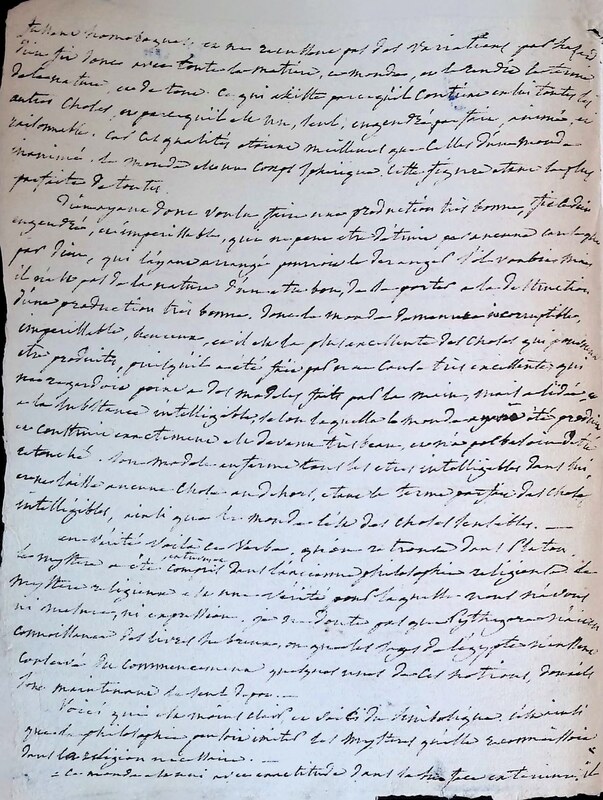 homogenes, ce ne recussent pas des variations par hasard
Dieu fit donc avec toute la matiere, ce monde, et le rendit le terme
de la nature, et de tout ce qui existe parce qu'il contient en lui toutes les
autres choses, et parce qu'il est un, seul, engendré parfait, animé, et
raisonnable. car ces qualités etoient meilleures que celles d'un monde
inanimé. le monde est un corps spherique, cette figure etant la plus
parfaite de toutes.
Dieu ayant donc voulu faire une production très bonne, fit le dieu
engendré, et imperissable, qui ne peut etre detruit par aucune cause que
par dieu, qui l'ayant arrangé pourroit le deranger s'il vouloit mais
il n'est pas de la nature d'un etre bon, de se porter a la destruction
d'une production très bonne. donc le monde demeure incorruptible,
imperissable, heureux, et il est la plus excellente des choses qui puissent
etre produites, puisqu'il a été fait par une cause très excellente, qui
ne regardoit point a des modeles faits par la main, mais a l'idée, et
a la substance intelligible, selon laquelle le monde ayant été produit
et construit exactement est devenu très beau, et n'a pas besoin d'etre
retouché. son modele enferme tous les etres intelligibles dans lui
et ne laisse aucune chose au dehors, etant le terme parfait des choses
intelligibles, ainsi que le monde l'est des choses sensibles. —
en vérité voilà le verbe, qu'on retrouve dans Platon.
Le mystere a été compris dans l'ancienne philosophie religieuse. le
mystere religieux est une vérité pour laquelle nous n'avons
ni mesure, ni expression. je ne doute pas que Pythagore n'ait eu
connoissance des livres hebreux, ou que les sages de l'egypte n'eussent
conservé du commencement quelques unes de ces notions, dont ils
sont maintenant le seul depot. —
Voici qui est moins clair, et voici du simbolique. c'est ainsi
que la philosophie pouvoit imiter les mysteres qu'elle reconnoissoit
dans la religion necessaire. —
= Ce monde est uni avec exactitude dans la surface exterieure, il